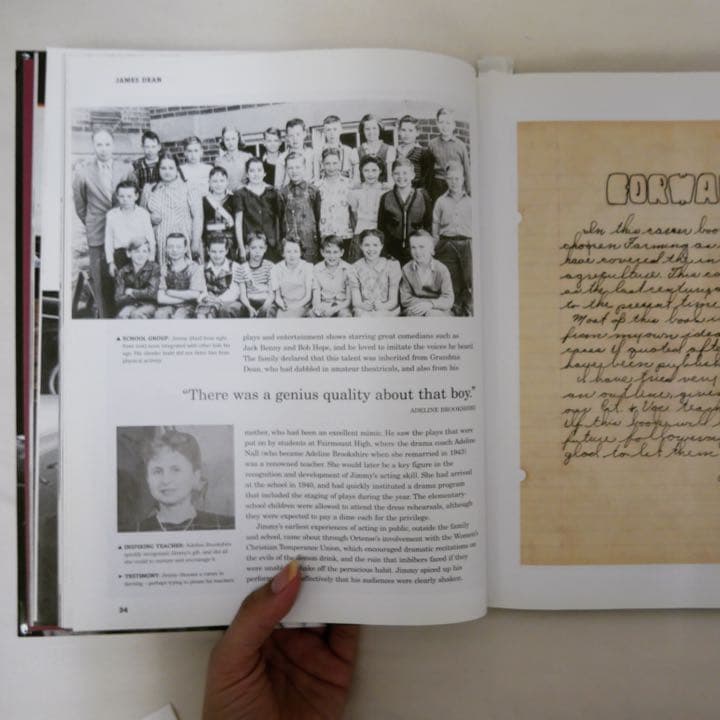 JAMES DEAN
▲ SCHOOL GROUP: Jimmy (third from right,
physical activity.
plays and entertainment shows starring great comedians such as
Jack Benny and Bob Hope, and he loved to imitate the voices he heard.
The family declared that this talent was inherited from Grandma
Dean, who had dabbled in amateur theatricals, and also from his
“There was a genius quality about that boy.”
ADELINE BROOKSHIRE
mother, who had been an excellent mimic. He saw the plays that were
put on by students at Fairmount High, where the drama coach Adeline
Nall (who became Adeline Brookshire when she remarried in 1947)
was a renowned teacher. She would later be a key figure in the
recognition and development of Jimmy's acting skill. She had arrived
at the school in 1940, and had quickly instituted a drama program
that included the staging of plays during the year. The elementary-
school children were allowed to attend the dress rehearsals, although
they were expected to pay a dime each for the privilege.
Jimmy's earliest experiences of acting in public, outside the family
and school, came about through Ortense's involvement with the Women's
Christian Temperance Union, which encouraged dramatic recitations on
the evils of the demon drink, and the ruin that imbibers faced if they
were off the pernicious habit. Jimmy spiced up his
effectively that his audiences were clearly shaken.
▲ INSPIRING TEACHER: Adeline Brookshire
quickly recognized Jimmy's gift, and did all
she could to nurture and encourage it.
► TESTIMONY: Jimmy chooses a career in
farming – perhaps trying to please his teachers.
34
FORWA
In this career boo
chosen Farming as
have covered the in
agriculture. This c
as the last century
to the present time
Most of this book i
from my own idea
if quoted
have been publish
I have tried very
an outline, given
If this book will
future followers
glad to let them